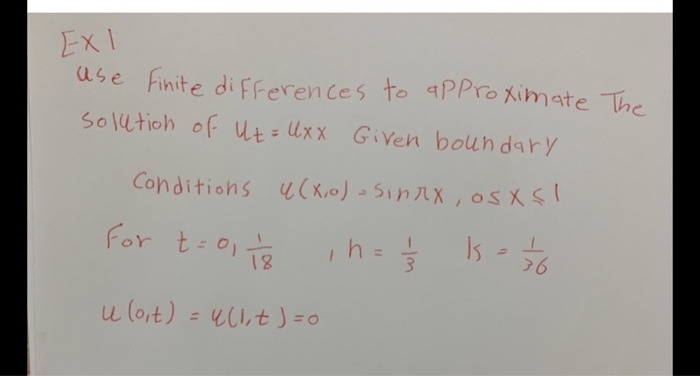 Ex1
use Finite differences to approximate The
solution of Ut = Uxx Given boundary
Conditions u(x,0) = sinπx, 0≤x≤1
For t = 0, 1/18 , h = 1/3 k = 1/36
u(0,t) = u(1,t) = 0